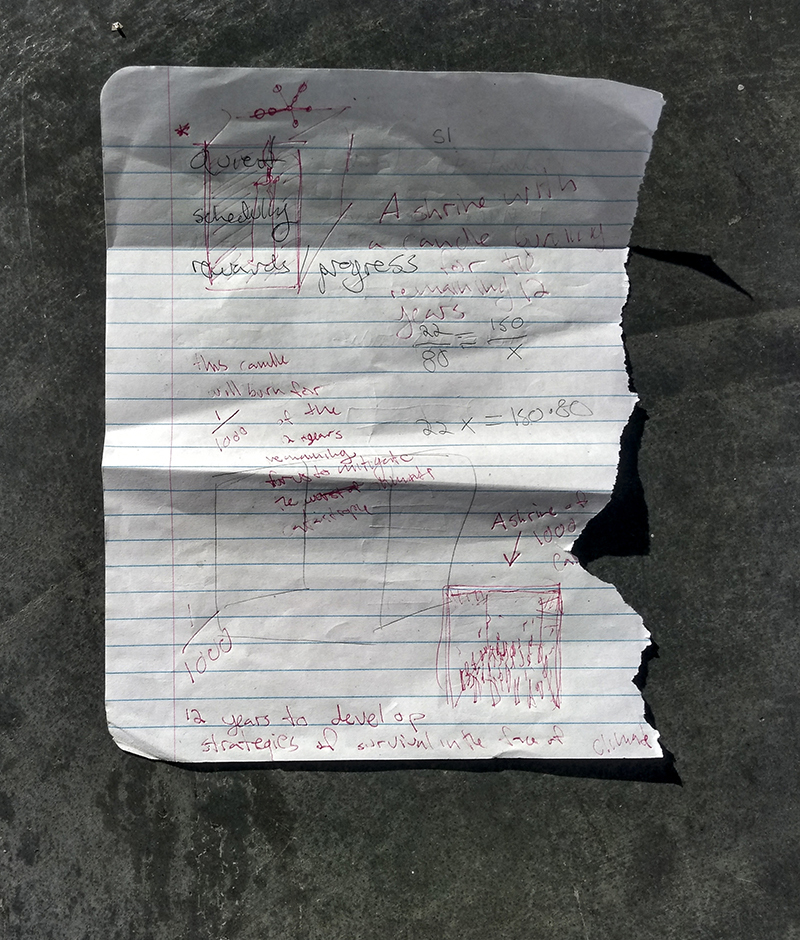 *
51
scheduling
rewards / progress
A shrine with
a candle
for the
remaining 12
years
22/80 = 150/x
this candle
will burn for
1/1000 of the
12 years
remaining
for us to mitigate
the worst of climate
catastrophe
22 x = 150·80
A shrine of
1000
1/1000
12 years to develop
strategies of survival in the face of climate